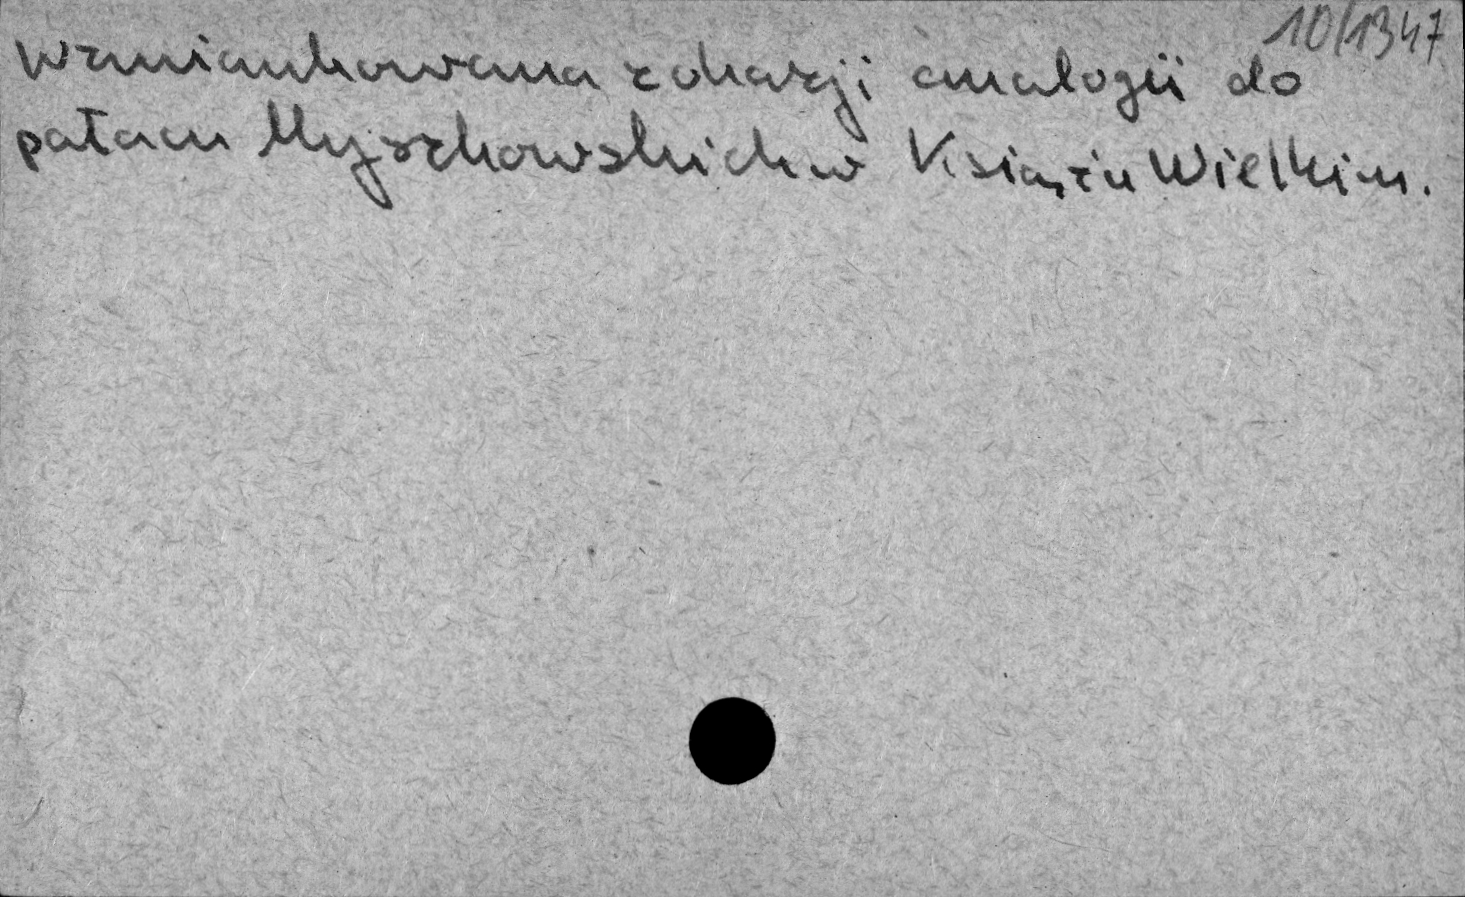 10/1347
wzmiankowana z okazji analogii do
pałacu Myszkowskich w Książu Wielkim.